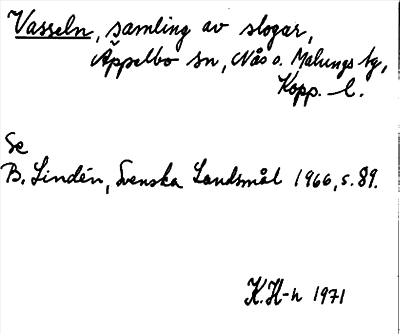 Vasseln, samling av slogar,
Äppelbo sn, Nås o. Malungs tg,
Kopp. l.
Se
B. Lindén, Svenska Landsmål 1966, s. 89.
K.H-n 1971